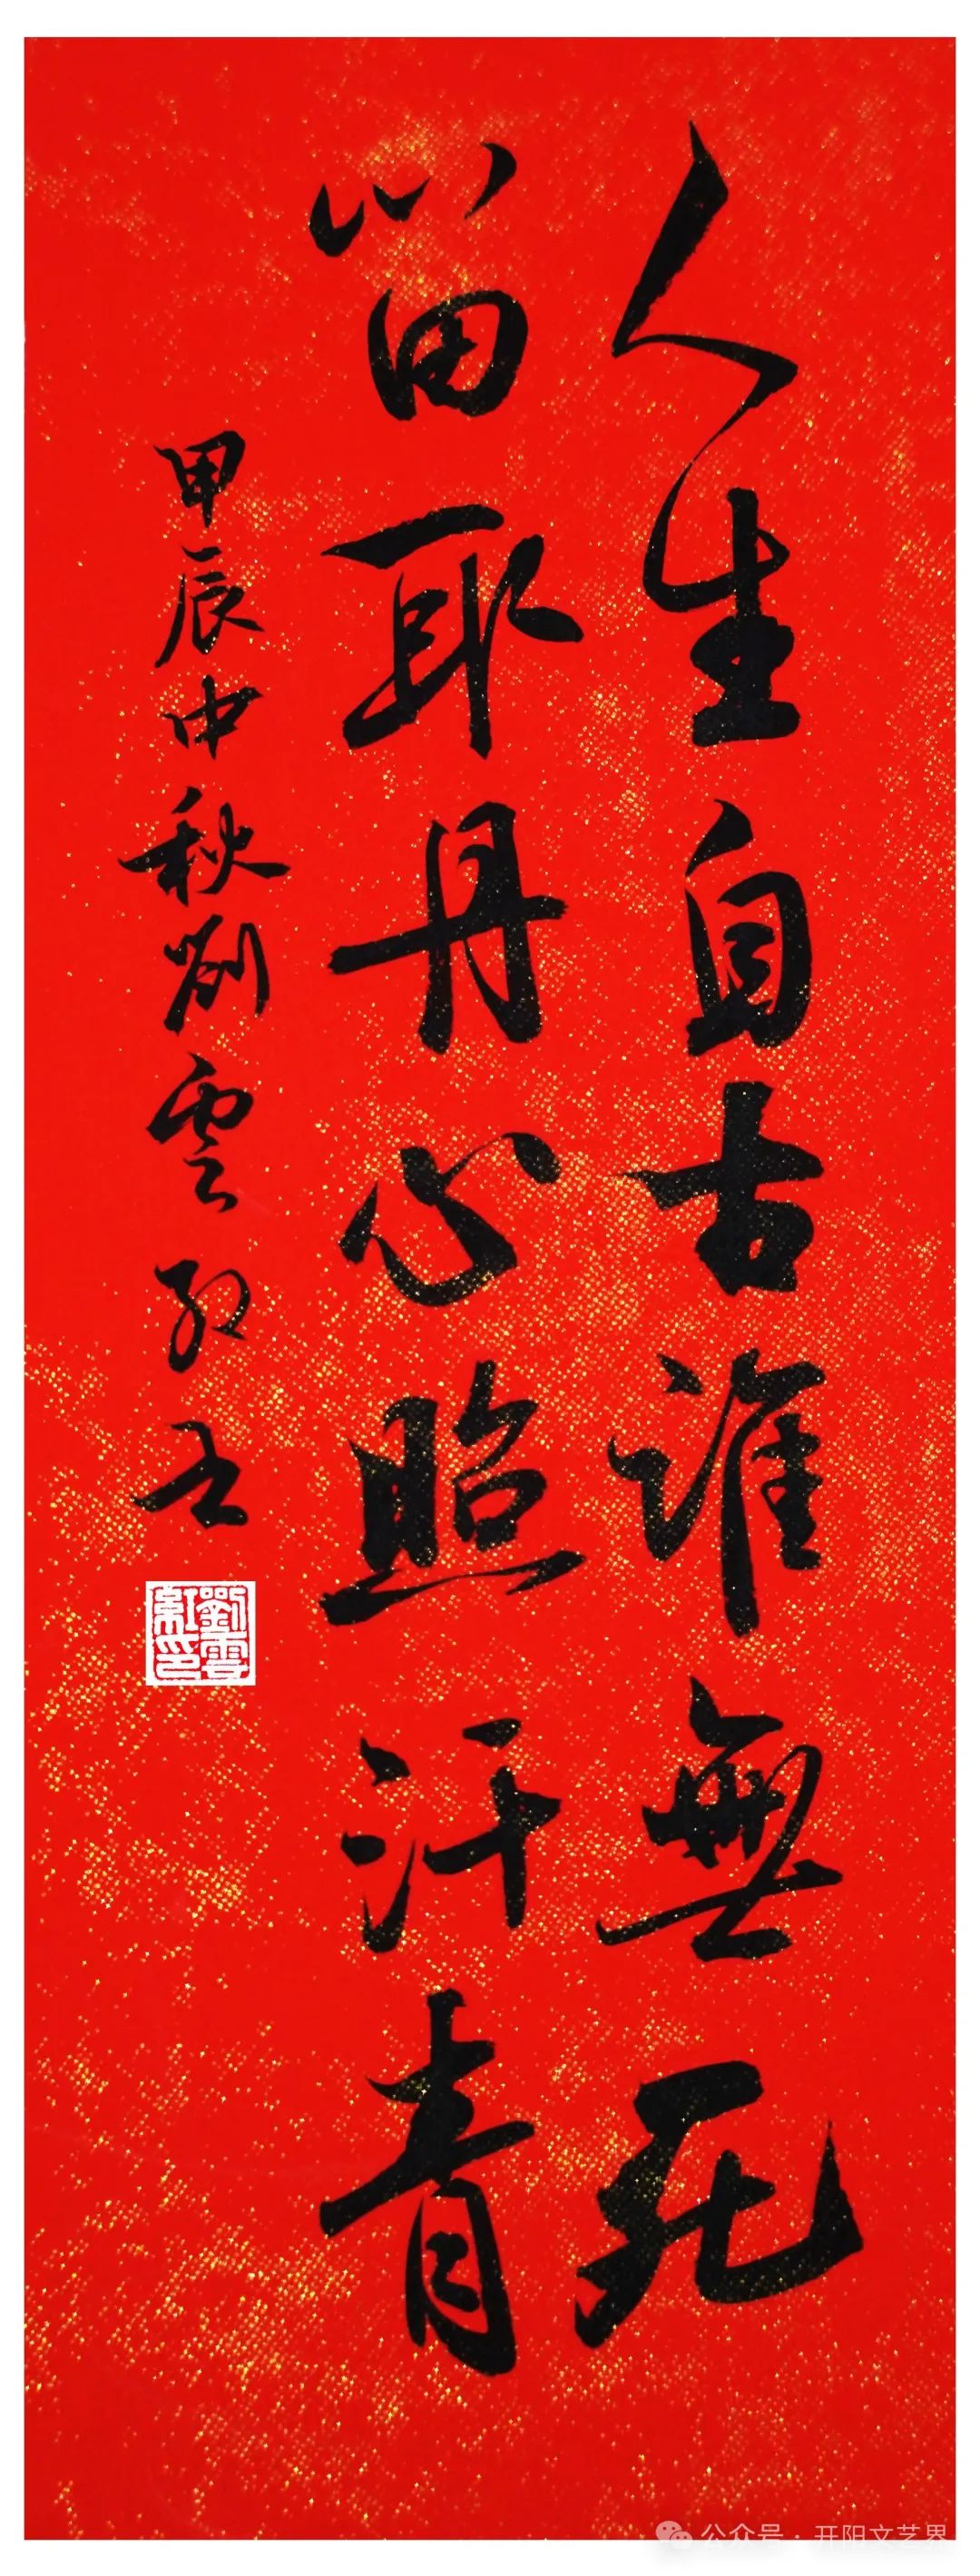 人生自古谁無死
留取丹心照汗青
甲辰中秋劉雲紅书
劉雲紅印
公众号·开阳文艺界